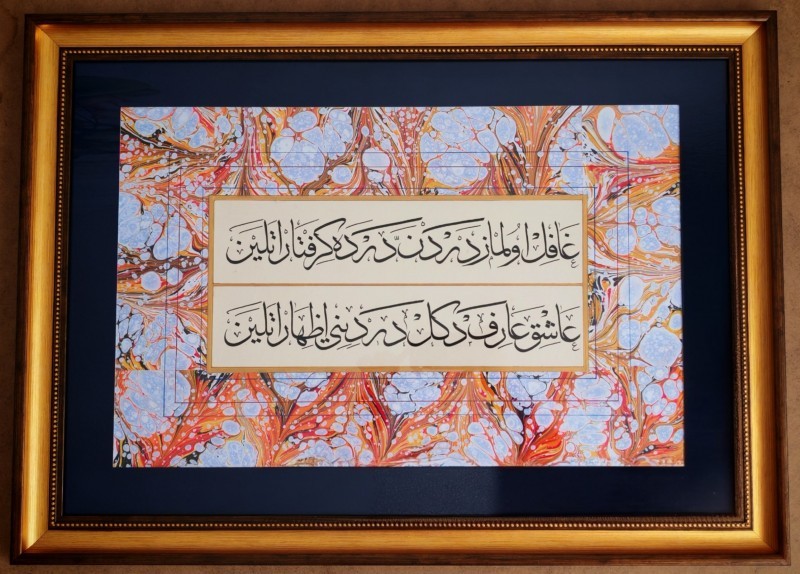 غافل اولماز دردن درده كرفتار اتلين
عاشق عارف دكل دردينى اظهار اتلين